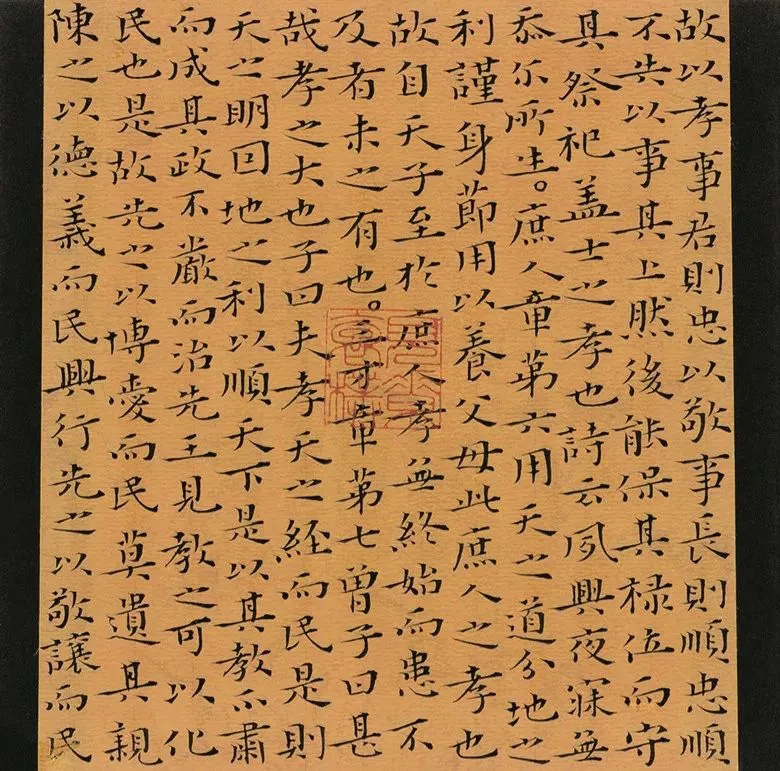 故以孝事君則忠以敬事長則順忠順
不失以事其上然後能保其祿位而守
其祭祀蓋士之孝也詩云夙興夜寐無
忝尒所生。庶人章第六用天之道分地之
利謹身節用以養父母此庶人之孝也
故自天子至於庶人孝無終始而患不
及者未之有也。三才章第七曾子曰甚
哉孝之大也子曰夫孝天之經而民是則
天之明因地之利以順天下是以其教不肅
而成其政不嚴而治先王見教之可以化
民也是故先之以博愛而民莫遺其親
陳之以德義而民興行先之以敬讓而民